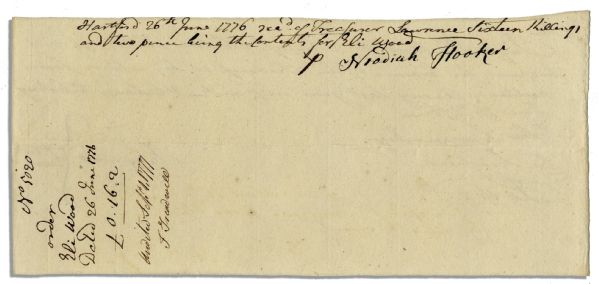 Hartford 26th June 1776 recd. of Treasurer Lawrence Sixteen Shillings
and two pence being the Contents for Eli Wood
Hooker
No 5020
order
Eli Wood
Dated 26 June 1776
£ 0.16.2
Audited Sept 1777